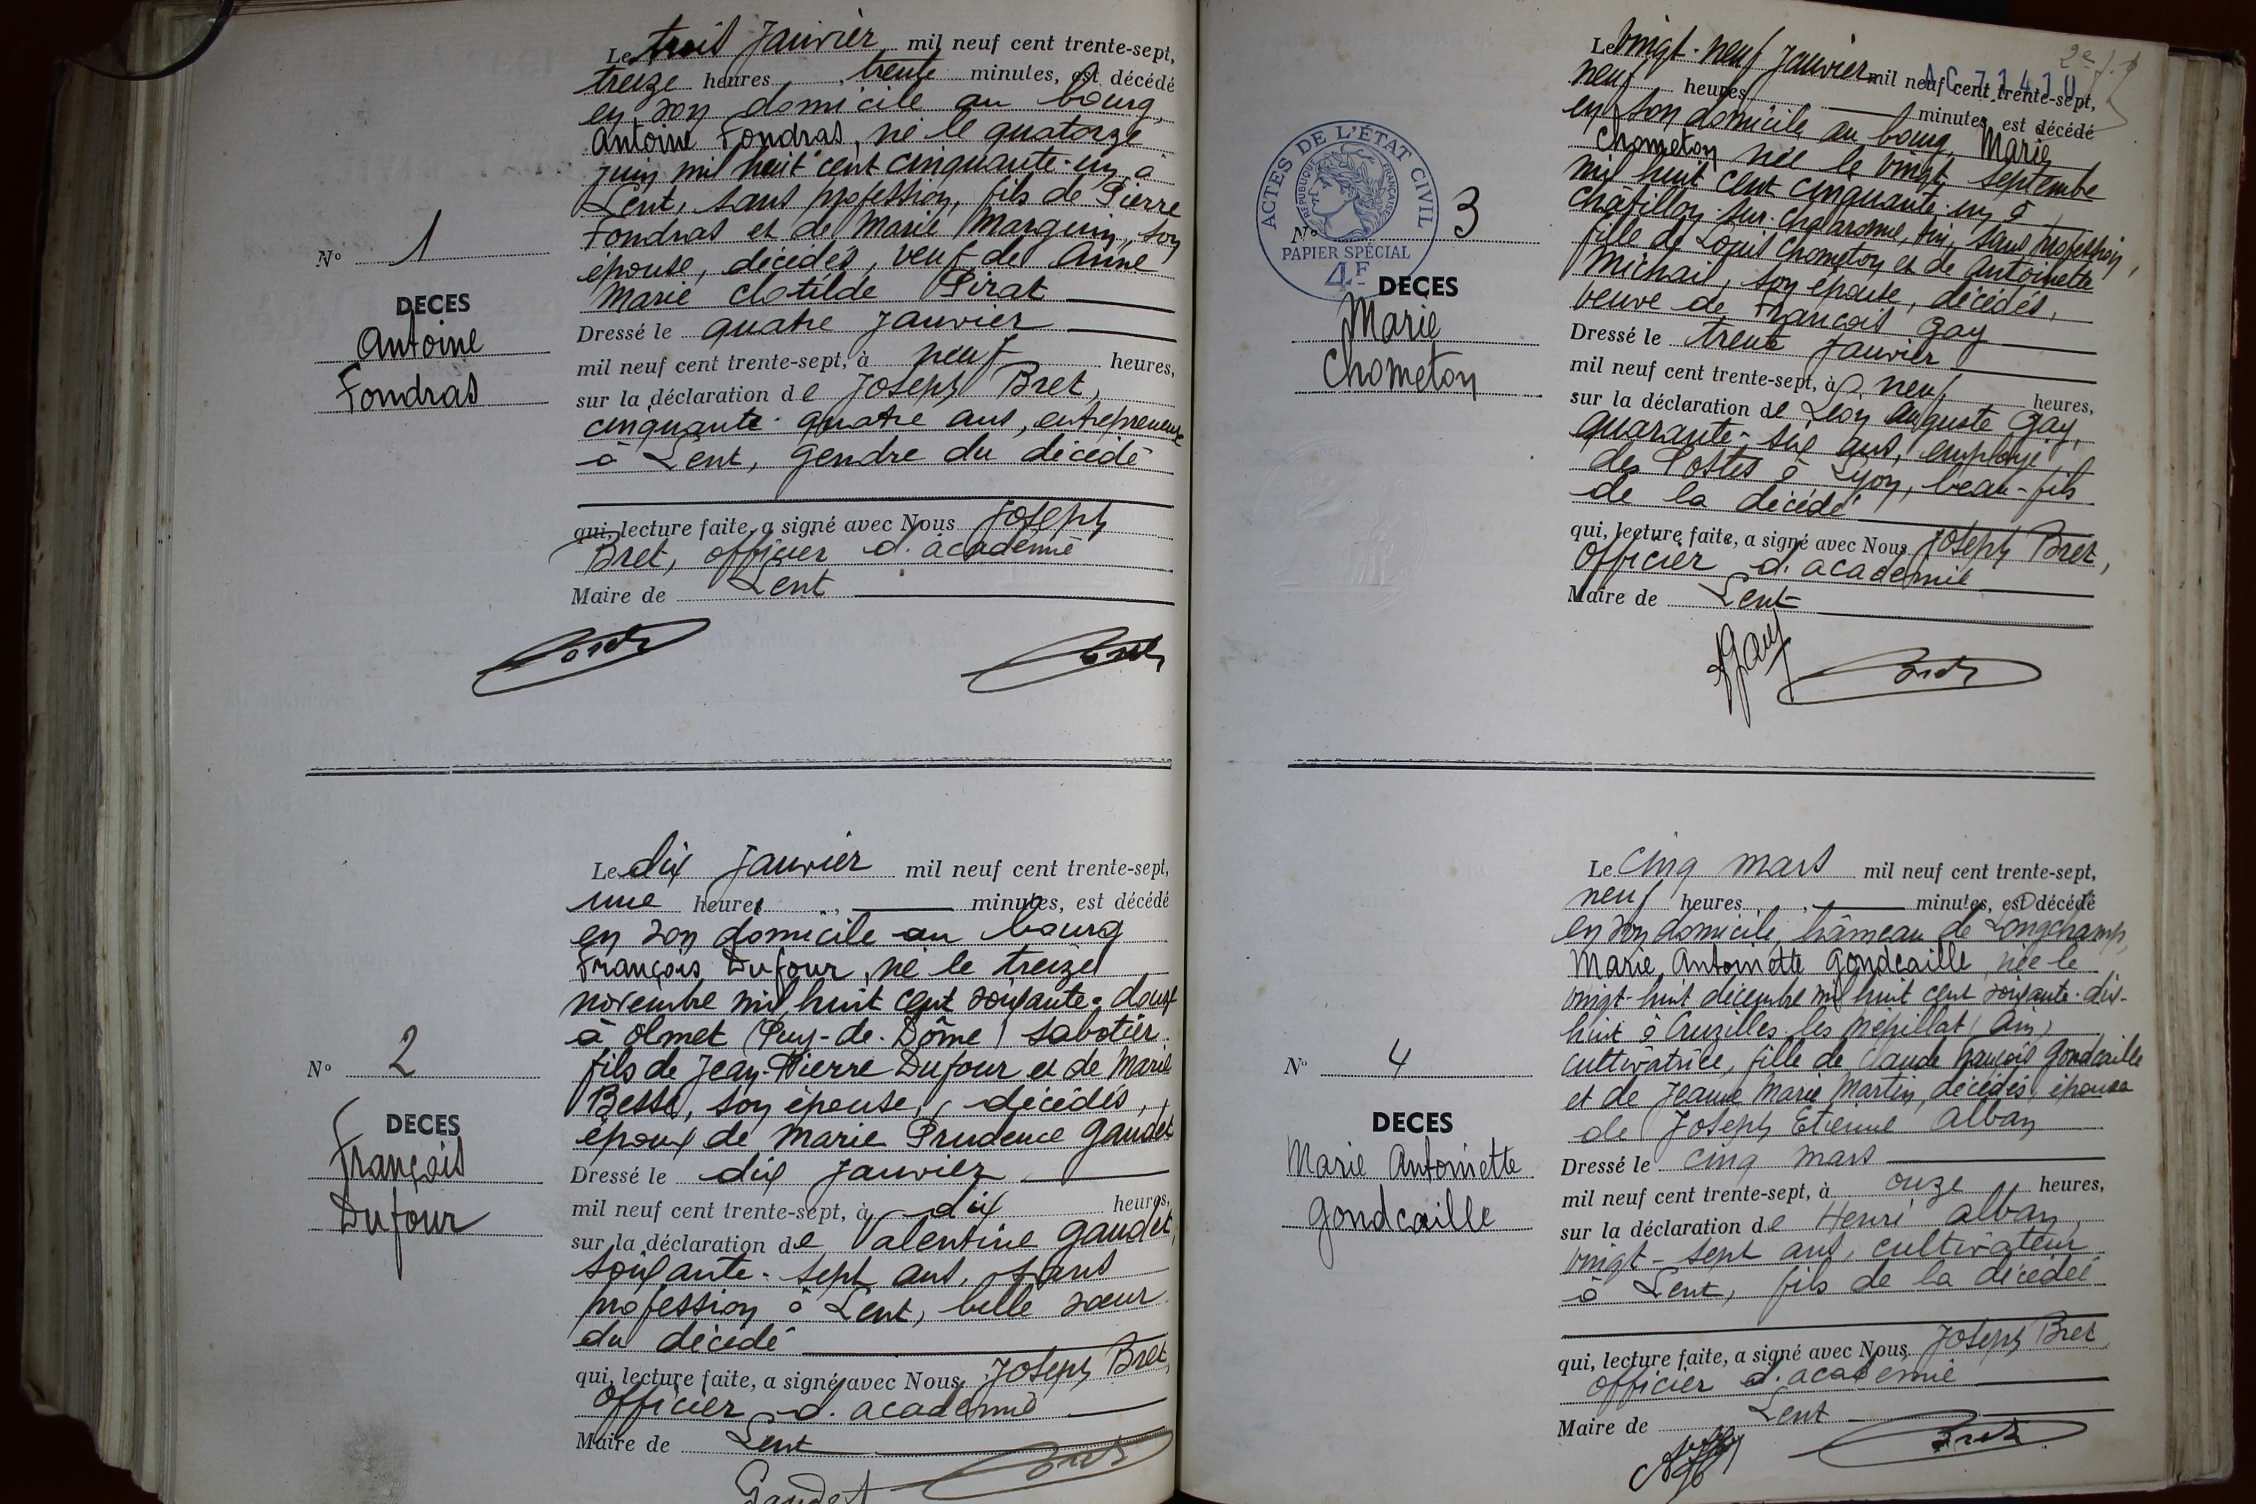 Le trois Janvier mil neuf cent trente-sept,
treize heures, trente minutes, est décédé
en son domicile au bourg,
Antoine Fondras, né le quatorze
juin mil huit cent cinquante-un à
Lent, sans profession, fils de Pierre
Fondras et de Marie Marguin, son
épouse, décédés, veuf de Anne
Marie Clotilde Pirat
N° 1
DECES
Antoine
Fondras
Dressé le quatre Janvier
mil neuf cent trente-sept, à neuf heures,
sur la déclaration de Joseph Bret,
cinquante-quatre ans, entrepreneur
à Lent, gendre du décédé
qui, lecture faite, a signé avec Nous Joseph
Bret, officier d'académie
Maire de Lent
Bret
Bret
Le dix Janvier mil neuf cent trente-sept,
une heure, minutes, est décédé
en son domicile au bourg
François Dufour, né le treize
novembre mil huit cent soixante-douze
à Olmet (Puy-de-Dôme) sabotier
fils de Jean-Pierre Dufour et de Marie
Besse, son épouse, décédés,
époux de Marie Prudence Gaudet
N° 2
DECES
François
Dufour
Dressé le dix Janvier
mil neuf cent trente-sept, à dix heures,
sur la déclaration de Valentine Gaudet,
soixante-sept ans, sans
profession à Lent, belle sœur
du décédé
qui, lecture faite, a signé avec Nous Joseph Bret,
officier d'académie
Maire de Lent
Gaudet Bret
2e f.
AC 71410
Le vingt-neuf Janvier mil neuf cent trente-sept,
neuf heures minutes, est décédé
en son domicile au bourg, Marie
Chometon née le vingt septembre
mil huit cent cinquante-un à
Châtillon-sur-Chalaronne, Ain, sans profession,
fille de Louis Chometon et de Antoinette
Michau, son épouse, décédés,
veuve de François Gay
ACTES DE L'ÉTAT CIVIL
RÉPUBLIQUE FRANÇAISE
PAPIER SPÉCIAL
4F
N° 3
DECES
Marie
Chometon
Dressé le trente Janvier
mil neuf cent trente-sept, à neuf heures,
sur la déclaration de Léon Auguste Gay,
quarante-six ans, employé
des Postes à Lyon, beau-fils
de la décédé
qui, lecture faite, a signé avec Nous Joseph Bret,
officier d'académie
Maire de Lent
Gay Bret
Le cinq mars mil neuf cent trente-sept,
neuf heures, minutes, est décédé
en son domicile, hameau de Longchamp,
Marie Antoinette Gondcaille, née le
vingt-huit décembre mil huit cent soixante-dix-
huit à Cruzilles les Mépillat (Ain)
cultivatrice, fille de Claude François Gondcaille
et de Jeanne Marie Martin, décédés, épouse
de Joseph Etienne Alban
N° 4
DECES
Marie Antoinette
Gondcaille
Dressé le cinq mars
mil neuf cent trente-sept, à onze heures,
sur la déclaration de Henri Alban,
vingt-sept ans, cultivateur
à Lent, fils de la décédée
qui, lecture faite, a signé avec Nous Joseph Bret,
officier d'académie
Maire de Lent
Bret